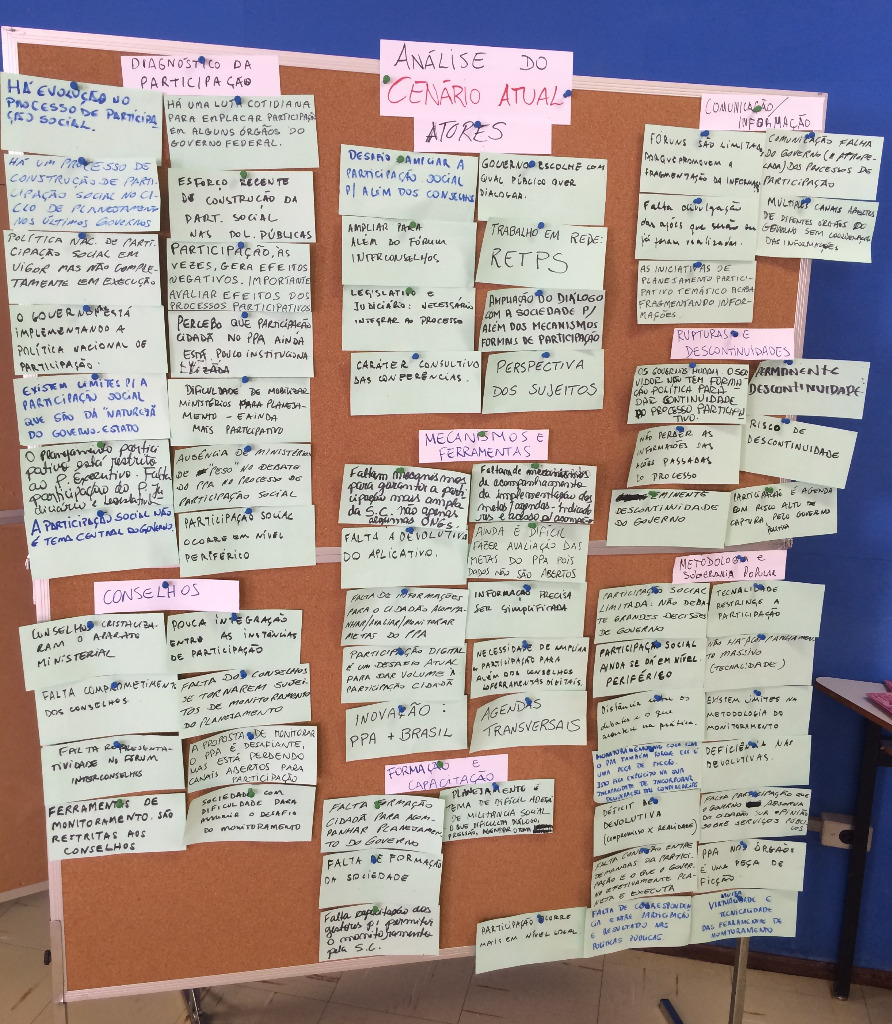 ANÁLISE DO
CENÁRIO ATUAL
DIAGNÓSTICO DA
PARTICIPAÇÃO
HÁ EVOLUÇÃO NO
PROCESSO DE PARTICIPA
ÇÃO SOCIAL.
HÁ UMA LUTA COTIDIANA
PARA EMPLACAR PARTICIPAÇÃO
EM ALGUNS ÓRGÃOS DO
GOVERNO FEDERAL.
HÁ UM PROCESSO DE
CONSTRUÇÃO DE PARTI-
CIPAÇÃO SOCIAL NO CI-
CLO DE PLANEJAMENTO
NOS ÚLTIMOS GOVERNOS
ESFORÇO RECENTE
DE CONSTRUÇÃO DA
PART. SOCIAL
NAS POL. PÚBLICAS
POLÍTICA NAC. DE PARTI-
CIPAÇÃO SOCIAL EM
VIGOR MAS NÃO COMPLE-
TAMENTE EM EXECUÇÃO
PARTICIPAÇÃO, ÀS
VEZES, GERA EFEITOS
NEGATIVOS. IMPORTANTE
AVALIAR EFEITOS DOS
PROCESSOS PARTICIPATIVOS
O GOVERNO ESTÁ
IMPLEMENTANDO A
POLÍTICA NACIONAL DE
PARTICIPAÇÃO.
PERCEBO QUE PARTICIPAÇÃO
CIDADÃ NO PPA AINDA
ESTÁ POUCO INSTITUCIONA
LIZADA
EXISTEM LIMITES P/ A
PARTICIPAÇÃO SOCIAL
QUE SÃO DA NATUREZA
DO GOVERNO-ESTADO
DIFICULDADE DE MOBILIZAR
MINISTÉRIOS PARA PLANEJA-
MENTO - E AINDA
MAIS PARTICIPATIVO
O Planejamento partici
pativo está restrito
ao P. Executivo. Falta
participação do P. Ju
diciário e Legislativo
AUSÊNCIA DE MINISTÉRIOS
DE "PESO" NO DEBATE
DO PPA NO PROCESSO DE
PARTICIPAÇÃO SOCIAL
A PARTICIPAÇÃO SOCIAL NÃO
É TEMA CENTRAL DO GOVERNO.
PARTICIPAÇÃO SOCIAL
OCORRE EM NÍVEL
PERIFÉRICO
CONSELHOS
CONSELHOS CRISTALIZA-
RAM O APARATO
MINISTERIAL
POUCA INTEGRAÇÃO
ENTRE AS INSTÂNCIAS
DE PARTICIPAÇÃO
FALTA COMPROMETIMENTO
DOS CONSELHOS.
FALTA DOS CONSELHOS
SE TORNAREM SUJEI-
TOS DE MONITORAMENTO
DO PLANEJAMENTO
FALTA REPRESENTA-
TIVIDADE NO FÓRUM
INTERCONSELHOS
A PROPOSTA DE MONITORAR
O PPA É DESAFIANTE,
MAS ESTÁ PERDENDO
CANAIS ABERTOS PARA
PARTICIPAÇÃO
FERRAMENTAS DE
MONITORAMENTO SÃO
RESTRITAS AOS
CONSELHOS
SOCIEDADE COM
DIFICULDADE PARA
ASSUMIR O DESAFIO
DO MONITORAMENTO
ATORES
DESAFIO AMPLIAR A
PARTICIPAÇÃO SOCIAL
P/ ALÉM DOS CONSELHOS
GOVERNO ESCOLHE COM
QUAL PÚBLICO QUER
DIALOGAR.
AMPLIAR PARA
ALÉM DO FÓRUM
INTERCONSELHOS
TRABALHO EM REDE:
RETPS
LEGISLATIVO E
JUDICIÁRIO: NECESSÁRIO
INTEGRAR AO PROCESSO
AMPLIAÇÃO DO DIÁLOGO
COM A SOCIEDADE P/
ALÉM DOS MECANISMOS
FORMAIS DE PARTICIPAÇÃO
CARÁTER CONSULTIVO
DAS CONFERÊNCIAS.
PERSPECTIVA
DOS SUJEITOS
MECANISMOS E
FERRAMENTAS
Faltam mecanismos
para garantir a parti
cipação mais ampla
da S.C. não apenas
algumas ONGs.
Faltam de mecanismos
de acompanhamento
da implementação das
metas/agendas - indicado
res e acesso p/ acompanhar
FALTA A DEVOLUTIVA
DO APLICATIVO.
AINDA É DIFÍCIL
FAZER AVALIAÇÃO DAS
METAS DO PPA POIS
DADOS NÃO SÃO ABERTOS
FALTA DE INFORMAÇÕES
PARA O CIDADÃO ACOMPA-
NHAR/AVALIAR/MONITORAR
METAS DO PPA
INFORMAÇÃO PRECISA
SER SIMPLIFICADA
PARTICIPAÇÃO DIGITAL
É UM DESAFIO ATUAL
PARA DAR VOLUME À
PARTICIPAÇÃO CIDADÃ
NECESSIDADE DE AMPLIAR
A PARTICIPAÇÃO PARA
ALÉM DOS CONSELHOS
C/ FERRAMENTAS DIGITAIS.
INOVAÇÃO:
PPA + BRASIL
AGENDAS
TRANSVERSAIS
FORMAÇÃO E
CAPACITAÇÃO
FALTA FORMAÇÃO
CIDADÃ PARA ACOM-
PANHAR PLANEJAMEN-
TO DO GOVERNO
PLANEJAMENTO É
TEMA DE DIFÍCIL ADESÃO
DE MILITÂNCIA SOCIAL
O QUE DIFICULTA DIÁLOGO,
PRESSÃO, AGENDAR O TEMA
FALTA DE FORMAÇÃO
DA SOCIEDADE
Falta capacitação dos
gestores p/ permitir
o monitoramento
pela S.C.
PARTICIPAÇÃO OCORRE
MAIS EM NÍVEL LOCAL
COMUNICAÇÃO/
INFORMAÇÃO
FÓRUNS SÃO LIMITADOS
PORQUE PROMOVEM A
FRAGMENTAÇÃO DA INFORMAÇÃO
COMUNICAÇÃO FALHA
DO GOVERNO
DOS PROCESSOS DE
PARTICIPAÇÃO
Falta divulgação
das ações que serão ou
já foram realizadas.
MÚLTIPLOS CANAIS ABERTOS
DE DIFERENTES ÓRGÃOS DE
GOVERNO SEM COORDENAÇÃO
DAS INFORMAÇÕES
AS INICIATIVAS DE
PLANEJAMENTO PARTICI-
PATIVO TEMÁTICO ACABA
FRAGMENTANDO INFOR-
MAÇÕES.
RUPTURAS E
DESCONTINUIDADES
OS GOVERNOS MUDAM O SER
VIDOR NÃO TEM FORMA
ÇÃO POLÍTICA PARA
DAR CONTINUIDADE
AO PROCESSO PARTICIPA
TIVO.
PERMANENTE
DESCONTINUIDADE.
NÃO PERDER AS
INFORMAÇÕES DAS
AÇÕES PASSADAS
DO PROCESSO
RISCO DE
DESCONTINUIDADE
EMINENTE
DESCONTINUIDADE
DO GOVERNO
PARTICIPAÇÃO É AGENDA
COM RISCO ALTO DE
CAPTURA PELO GOVERNO
METODOLOGIA E
SOBERANIA POPULAR
PARTICIPAÇÃO SOCIAL
LIMITADA: NÃO DEBA
TE GRANDES DECISÕES
DE GOVERNO
TECNALIDADE
RESTRINGE A
PARTICIPAÇÃO
PARTICIPAÇÃO SOCIAL
AINDA SE DÁ EM NÍVEL
PERIFÉRICO
NÃO HÁ
MASSIVO
(TECNALIDADE)
Distância entre os
debates e o que
acontece na prática.
EXISTEM LIMITES NA
METODOLOGIA DO
MONITORAMENTO
DEFICIÊNCIA NAS
DEVOLUTIVAS.
DÉFICIT DE
DEVOLUTIVA
(COMPROMISSO X REALIDADE)
FALTA PARTICIPAÇÃO QUE
O GOVERNO ABSORVA
DO CIDADÃO SUA OPINIÃO
SOBRE SERVIÇOS PÚBLI
COS
FALTA CONEXÃO ENTRE
DEMANDAS DA PARTICI-
PAÇÃO E O QUE O GOVER-
NO EFETIVAMENTE PLA-
NEJA E EXECUTA
PPA NOS ÓRGÃOS
É UMA PEÇA DE
FICÇÃO
FALTA DE CORRESPONDÊN
CIA ENTRE PARTICIPAÇÃO
E RESULTADO NAS
POLÍTICAS PÚBLICAS.
MUITA
VIRTUALIDADE E
TECNICALIDADE
DAS FERRAMENTAS DE
MONITORAMENTO